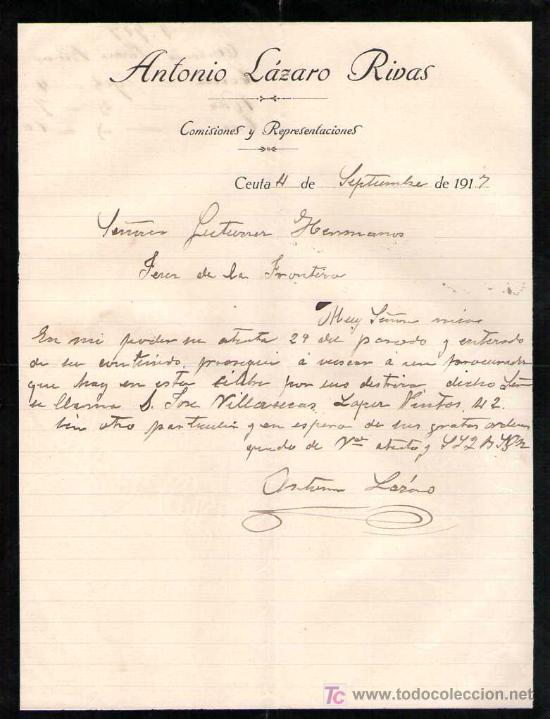 Antonio Lázaro Rivas
Comisiones y Representaciones
Ceuta 4 de Septiembre de 1917
Señores Gutierrez Hermanos
Jerez de la Frontera
Muy Señores mios
En mi poder su atenta 29 del pasado y enterado
de su contenido á un procurador
que hay en esta por sus dicho Señor
se llama D. Jose Villasecas Lopez Pintos 42.
Sin otro particular y en espera de sus gratas ordenes
quedo de Vds atento y
Antonio Lázaro
TC www.todocoleccion.net